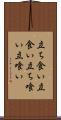 立ち食い立
食い立ち喰
い立喰い